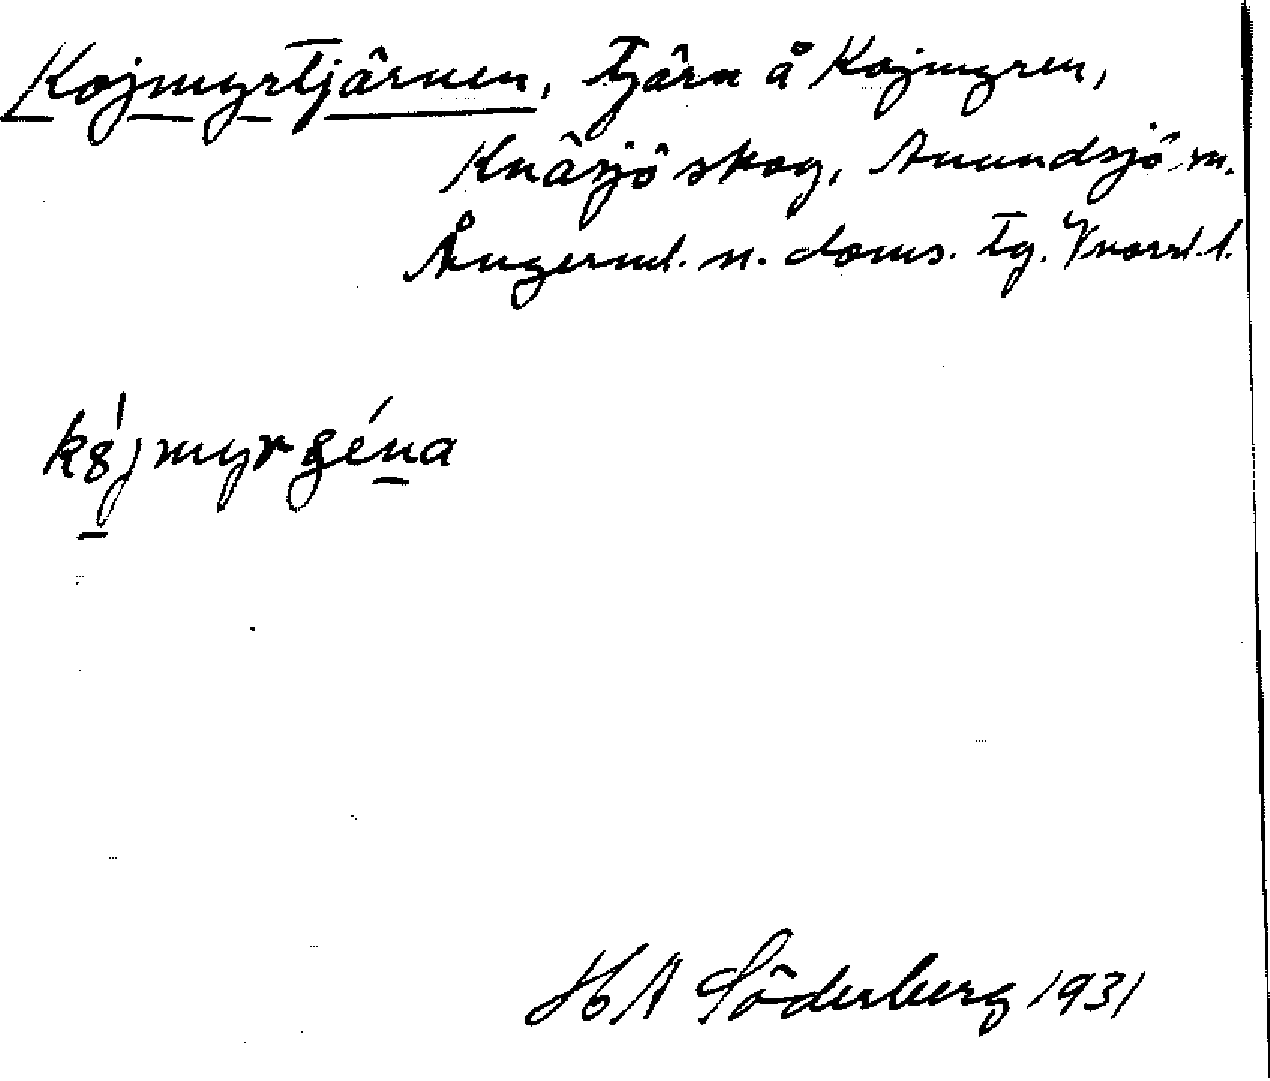 Kojmyrtjärnen, tjärn å Kojmyren,
Knäsjö skog, Anundsjö sn.
Ångerml. n. doms. tg. Vnorrl. l.
HA Söderberg 1931